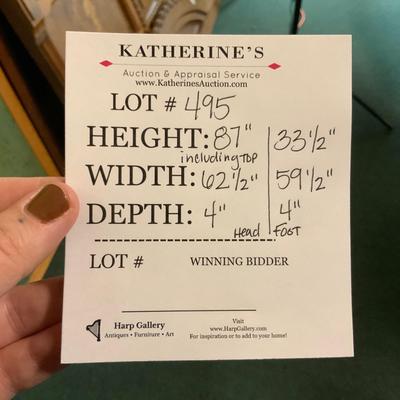 KATHERINE'S
Auction & Appraisal Service
www.KatherinesAuction.com
LOT # 495
HEIGHT: 87" 33 1/2"
including TOP
WIDTH: 62 1/2" 59 1/2"
DEPTH: 4" 4"
Head Foot
LOT # WINNING BIDDER
Harp Gallery
Antiques • Furniture • Art
Visit
www.HarpGallery.com
For inspiration or to add to your home!